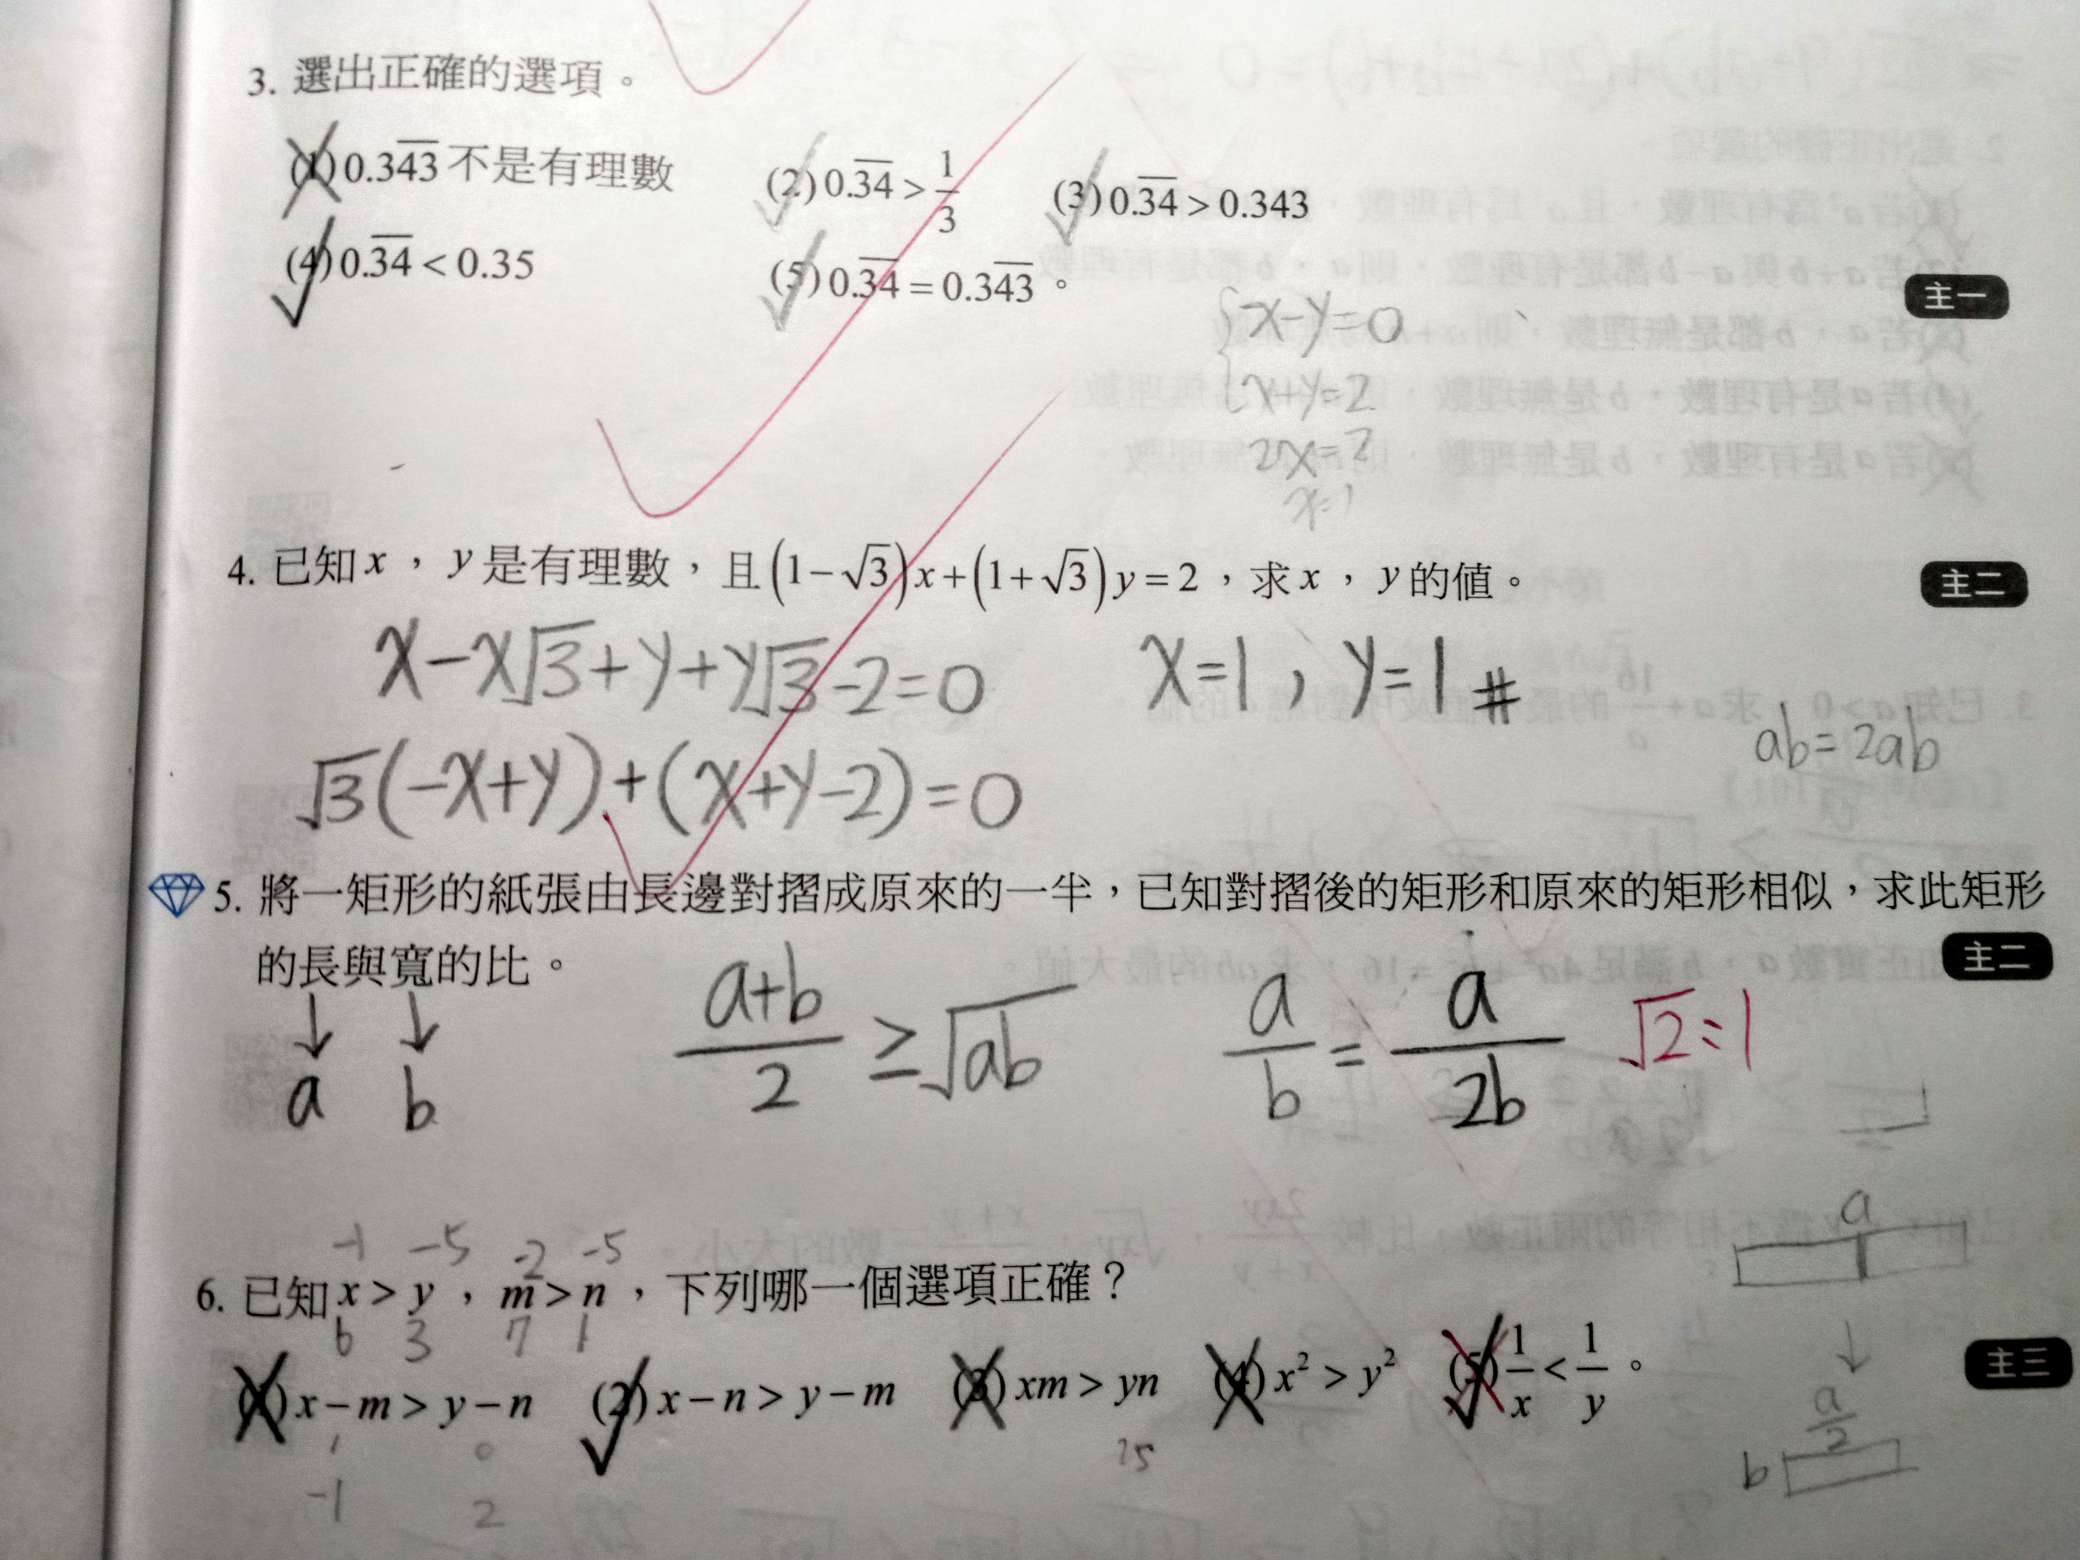 3. 選出正確的選項。
(1) 0.3\overline{43} 不是有理數 (2) 0.\overline{34} > \frac{1}{3} (3) 0.\overline{34} > 0.343
(4) 0.\overline{34} < 0.35 (5) 0.\overline{34} = 0.3\overline{43}。
主一
-x-y=0
x+y=2
2x=2
x=1
4. 已知 x，y 是有理數，且 (1-√3)x+(1+√3)y=2，求 x，y 的值。
主二
x-x√3+y+y√3-2=0
x=1, y=1 #
√3(-x+y)+(x+y-2)=0
ab=2ab
5. 將一矩形的紙張由長邊對摺成原來的一半，已知對摺後的矩形和原來的矩形相似，求此矩形
的長與寬的比。
主二
↓ ↓
a b
\frac{a+b}{2} ≥ √ab
\frac{a}{b} = \frac{a}{2b}
√2:1
a
↓
\frac{a}{2}
b
-1 -5 -2 -5
6. 已知 x > y，m > n，下列哪一個選項正確？
6 3 7 1
主三
(1) x-m > y-n (2) x-n > y-m (3) xm > yn (4) x² > y² (5) \frac{1}{x} < \frac{1}{y}。
-1 2